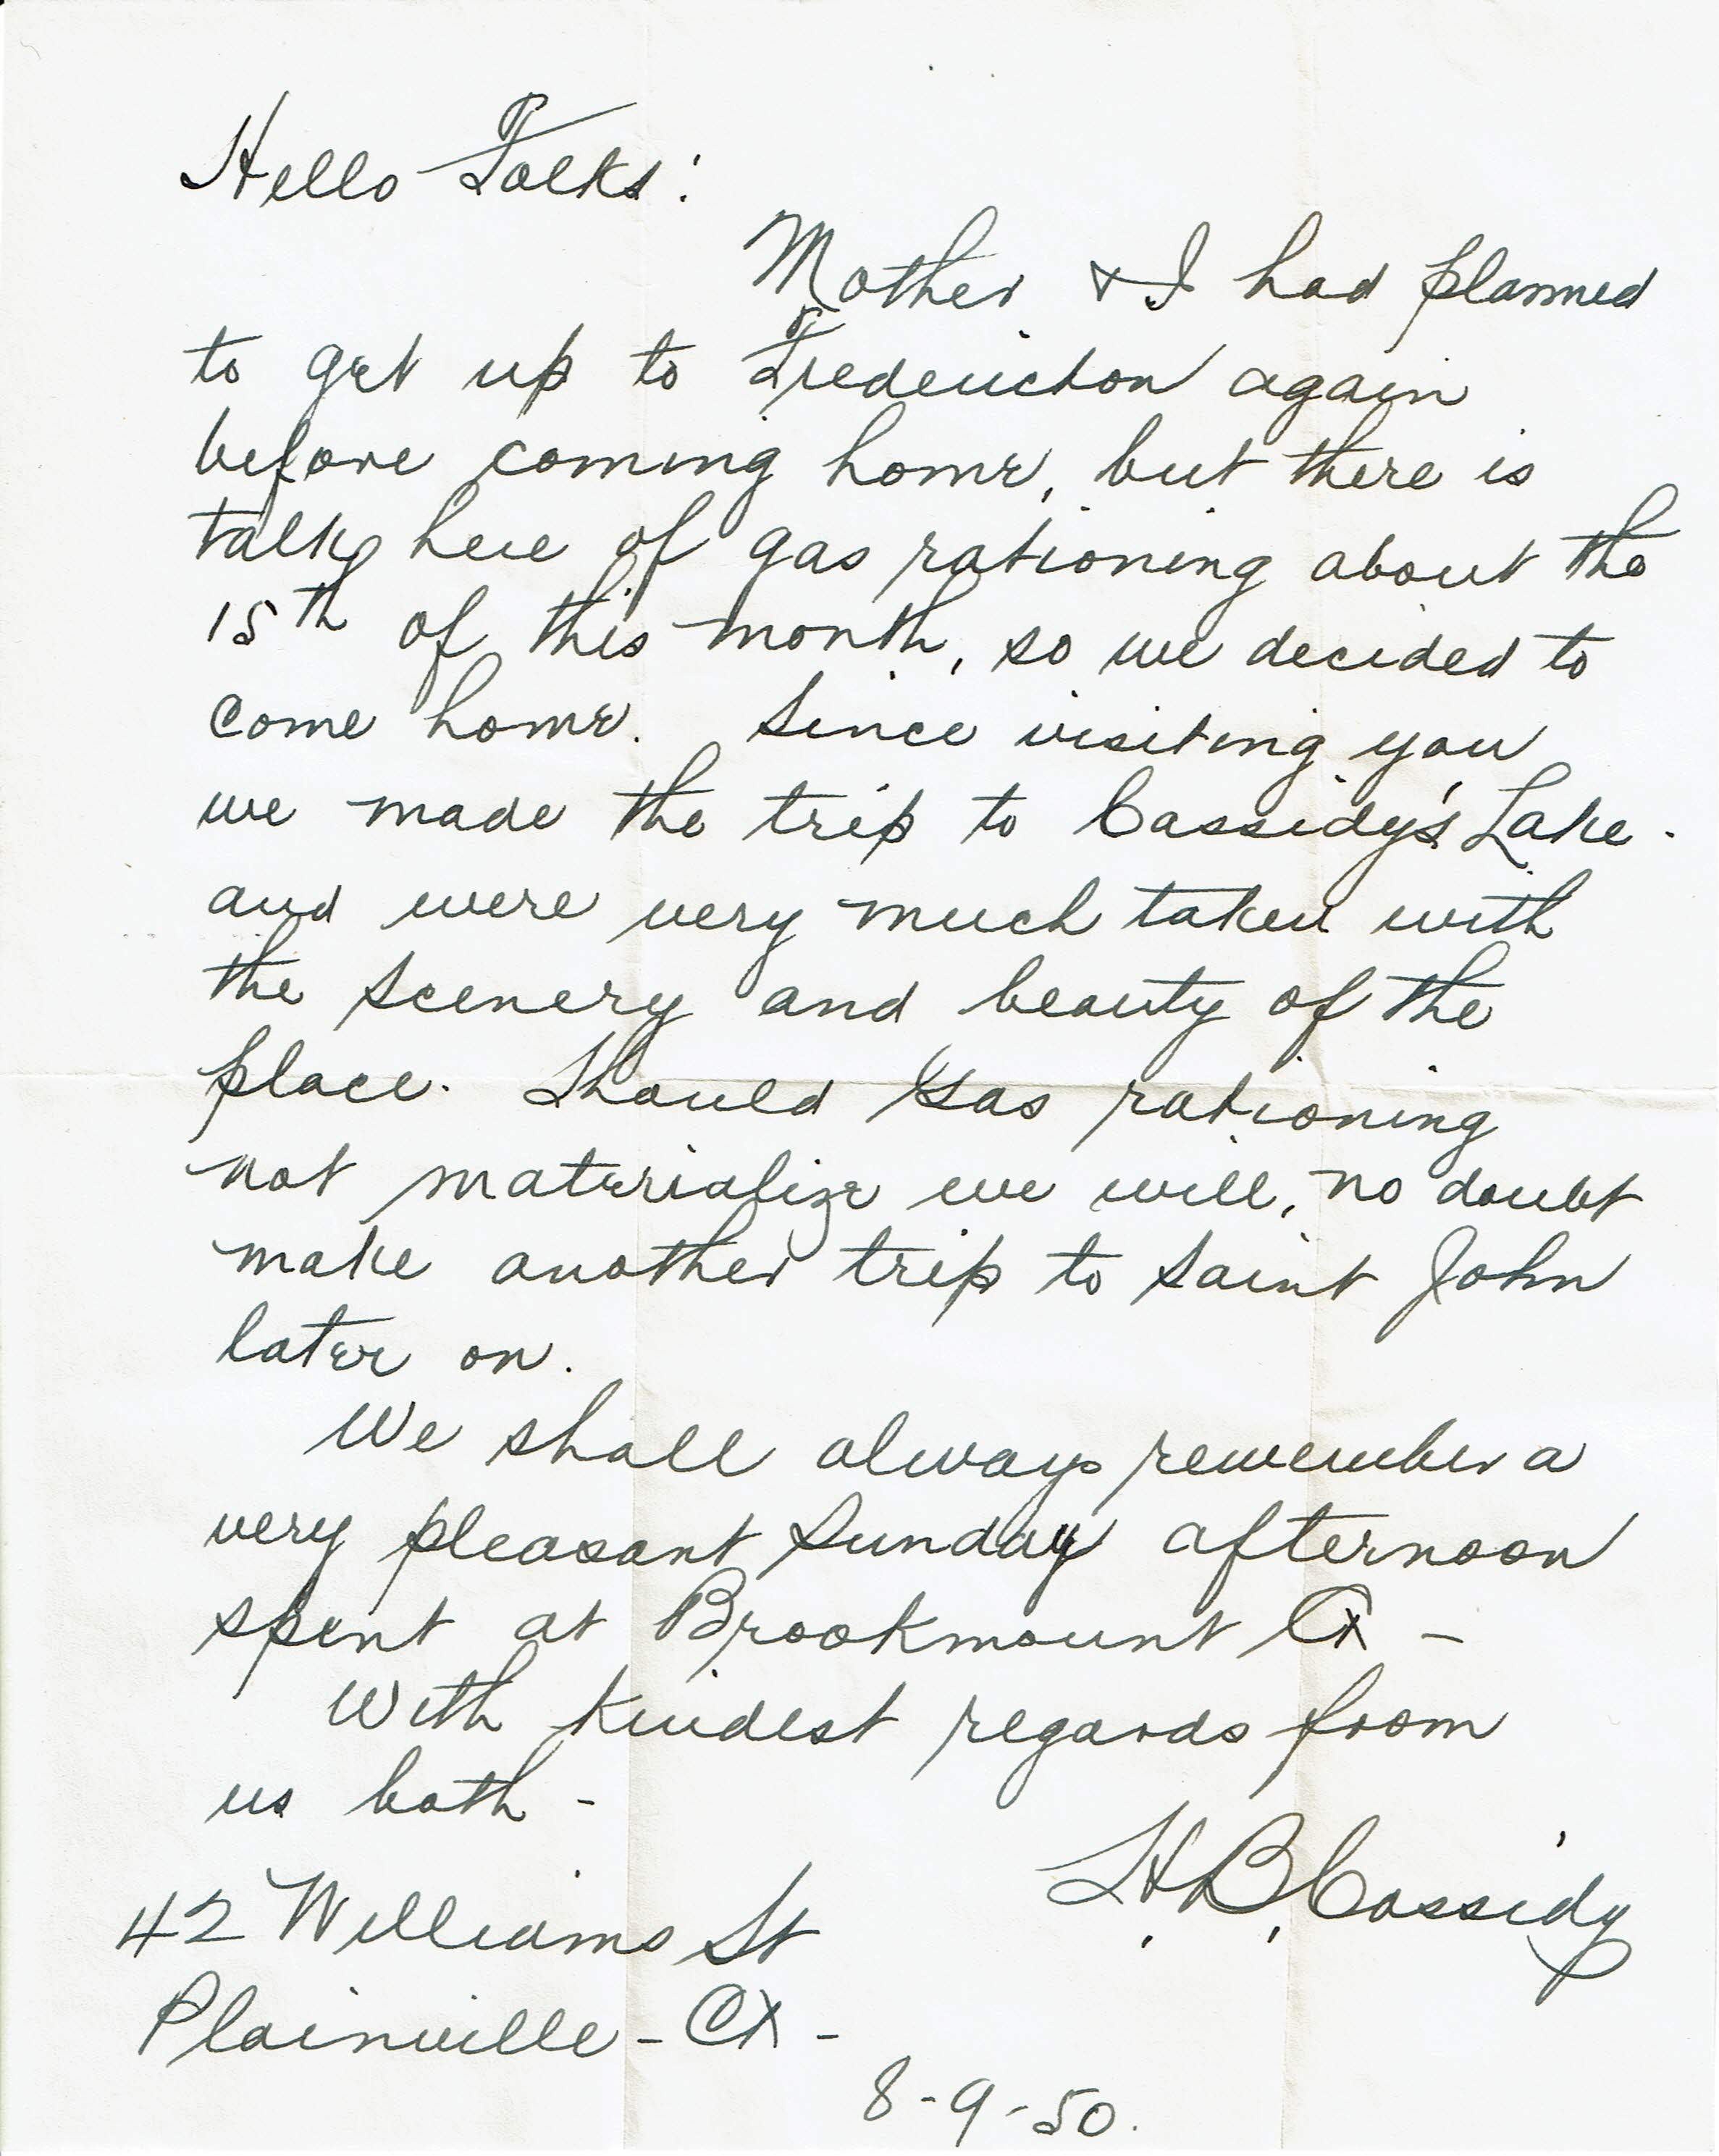 Hello Folks:
Mother & I had planned
to get up to Fredericton again
before coming home, but there is
talk here of gas rationing about the
15th of this month, so we decided to
come home. Since visiting you
we made the trip to Cassidy's Lake.
and were very much taken with
the scenery and beauty of the
place. Should Gas rationing
not materialize we will, no doubt
make another trip to Saint John
later on.
We shall always remember a
very pleasant Sunday afternoon
spent at Brookmount Ct -
With kindest regards from
us both -
H. B. Cassidy
42 Williams St
Plainville - Ct -
8-9-50.